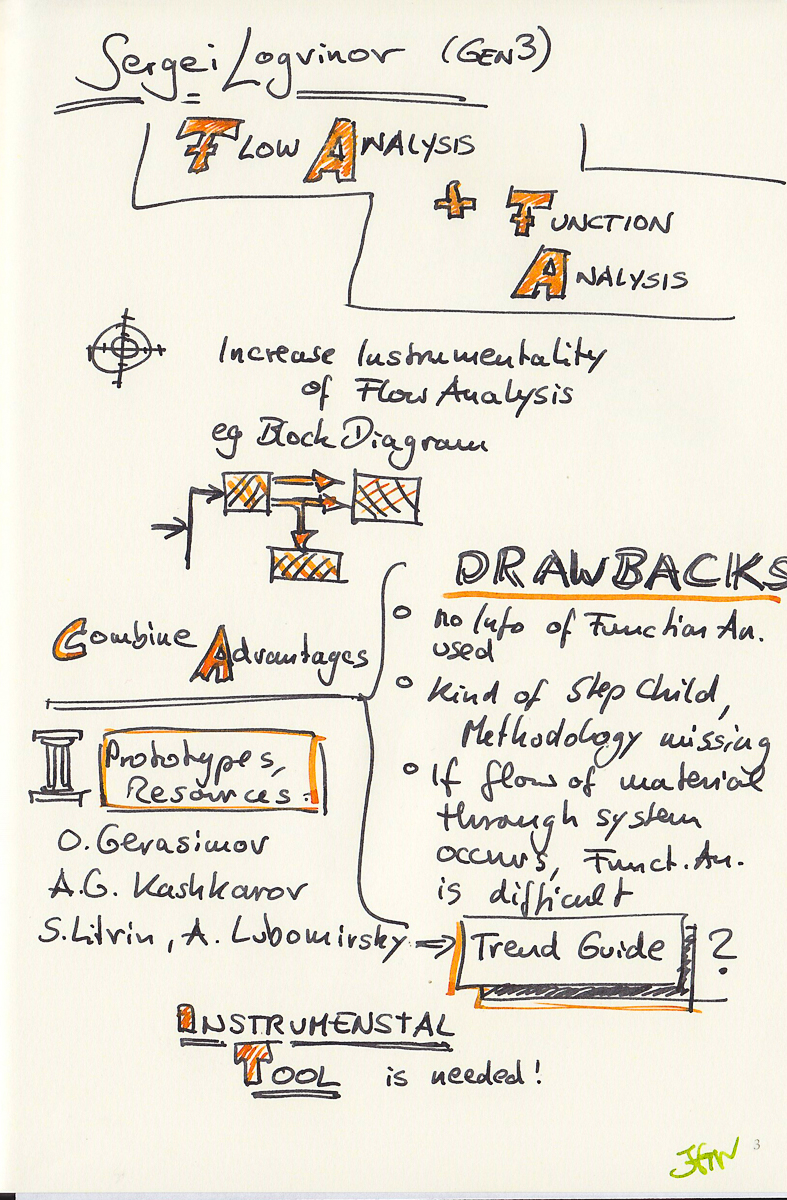 Sergei Logvinov (GEN3)
FLOW ANALYSIS
+ FUNCTION
ANALYSIS
Increase Instrumentality
of Flow Analysis
eg Block Diagram
DRAWBACKS
o no Info of Function An.
used
o Kind of Step Child,
Methodology missing
o If flow of material
through system
occurs, Funct. An.
is difficult
Combine Advantages
Prototypes,
Resources:
O. Gerasimov
A.G. Kashkarov
S. Litvin, A. Lubomirsky => Trend Guide ?
INSTRUMENSTAL
TOOL is needed!
3